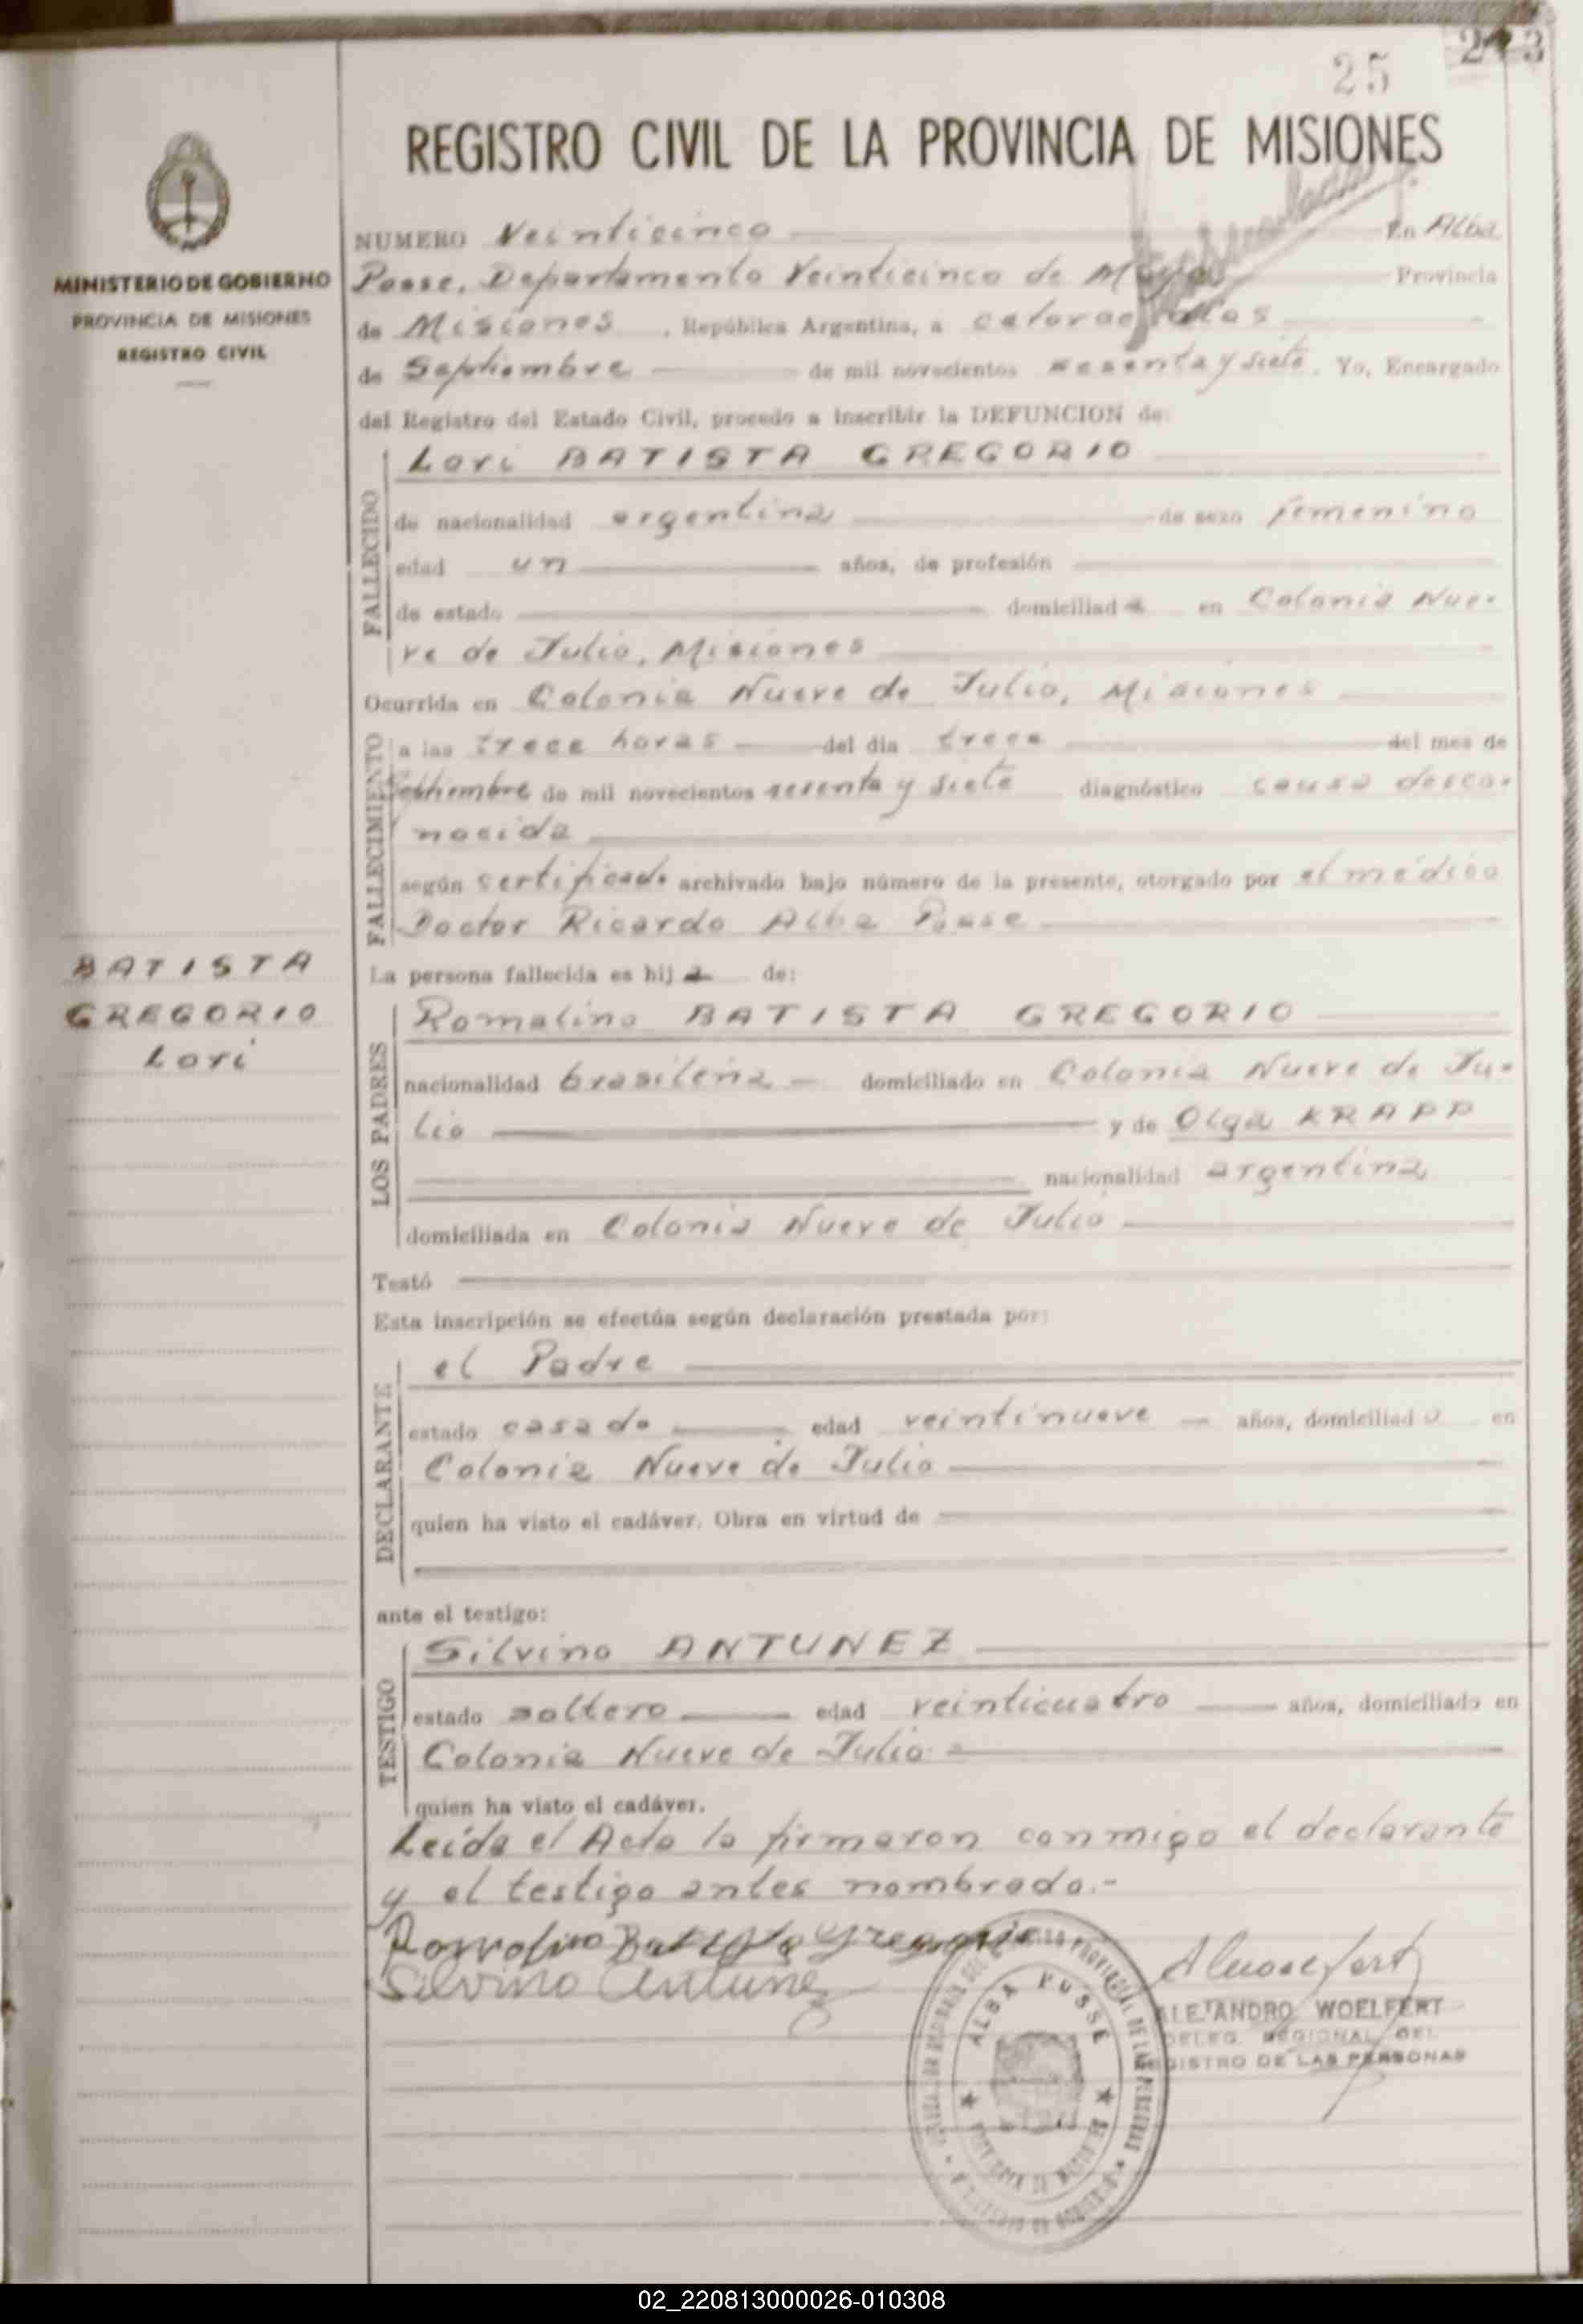 25
REGISTRO CIVIL DE LA PROVINCIA DE MISIONES
MINISTERIO DE GOBIERNO
PROVINCIA DE MISIONES
REGISTRO CIVIL
NUMERO Veinticinco En Alba
Posse, Departamento Veinticinco de Mayo Provincia
de Misiones, República Argentina, a catorce
de Septiembre de mil novecientos sesenta y siete. Yo, Encargado
del Registro del Estado Civil, procedo a inscribir la DEFUNCION de:
FALLECIDO
Lori BATISTA GREGORIO
de nacionalidad argentina de sexo femenino
edad un años, de profesión
de estado domiciliada en Colonia Nue-
ve de Julio, Misiones
Ocurrida en Colonia Nueve de Julio, Misiones
FALLECIMIENTO
a las trece horas del día trece del mes de
Septiembre de mil novecientos sesenta y siete diagnóstico causa desco-
nocida
según certificado archivado bajo número de la presente, otorgado por el médico
Doctor Ricardo Alba Posse
La persona fallecida es hija de:
BATISTA
GREGORIO
Lori
LOS PADRES
Romalino BATISTA GREGORIO
nacionalidad brasileña domiciliado en Colonia Nueve de Ju-
lio y de Olga KRAPP
nacionalidad argentina
domiciliada en Colonia Nueve de Julio
Testó
Esta inscripción se efectúa según declaración prestada por:
DECLARANTE
el Padre
estado casado edad veintinueve años, domiciliado en
Colonia Nueve de Julio
quien ha visto el cadáver. Obra en virtud de
ante el testigo:
TESTIGO
Silvino ANTUNEZ
estado soltero edad veinticuatro años, domiciliado en
Colonia Nueve de Julio
quien ha visto el cadáver.
Leída el Acta la firmaron conmigo el declarante
y el testigo antes nombrado.-
Romalino Batista Gregorio
Silvino Antunez
ALBA POSSE
ALEJANDRO WOELFERT
DELEG. REGIONAL DEL
REGISTRO DE LAS PERSONAS
02_220813000026-010308